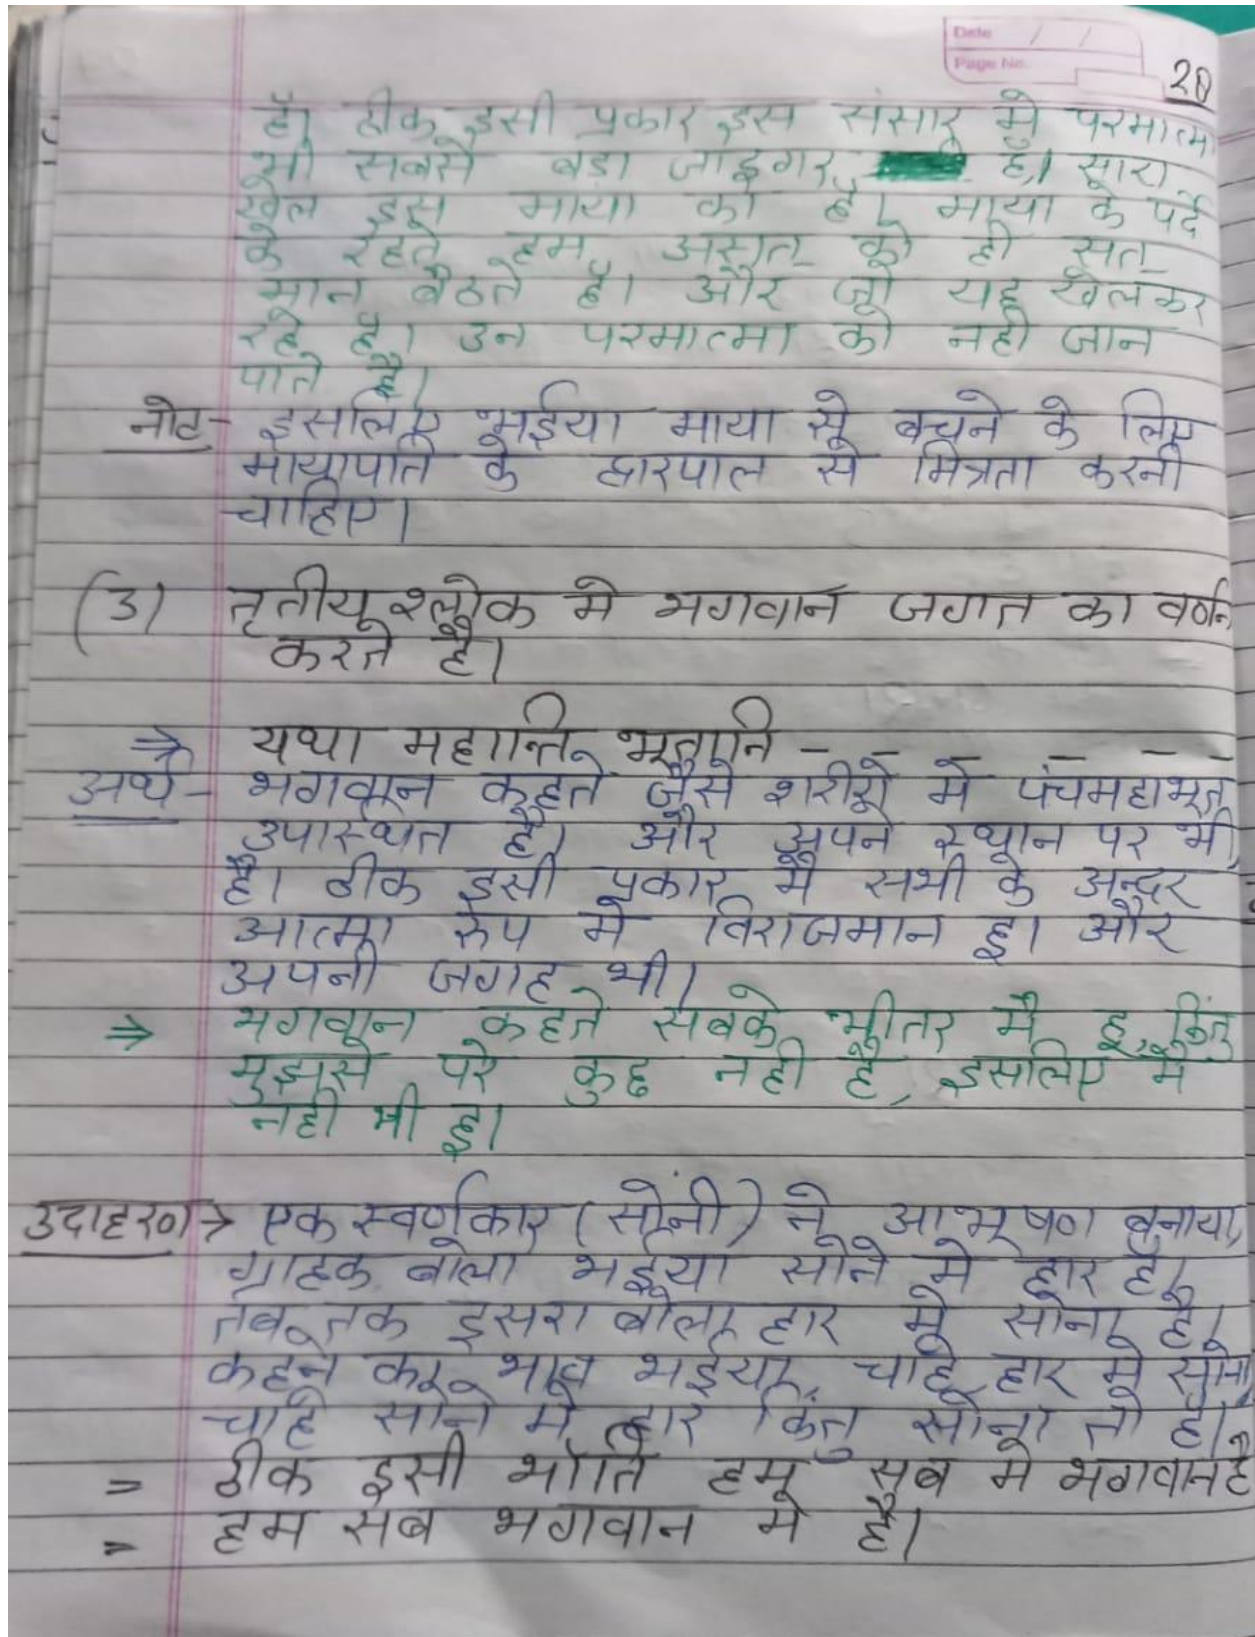 Date / /
Page No.
20
है। ठीक इसी प्रकार इस संसार मे परमात्म
भी सबसे बडा जादूगर है। सारा
खेल इस माया का है। माया के पर्दे
के रहते हम असत् को ही सत्
मान बैठते है। और जो यह खेल कर
रहे है। उन परमात्मा को नही जान
पाते है।
नोट- इसलिए भईया माया से बचने के लिए
मायापति के द्वारपाल से मित्रता करनी
चाहिए।
(3) तृतीय श्लोक मे भगवान जगत का वर्णन
करते है।
⇒ यथा महान्ति भूतानि - - - - -
अर्थ- भगवान कहते जैसे शरीरो मे पंचमहाभूत
उपस्थित है। और अपने स्थान पर भी
है। ठीक इसी प्रकार मै सभी के अन्दर
आत्मा रूप मे विराजमान हू। और
अपनी जगह भी।
⇒ भगवान कहते सबके भीतर मै हू, किंतु
मुझसे परे कुछ नही है, इसलिए मै
नही भी हू।
उदाहरण→ एक स्वर्णकार (सोनी) ने आभूषण बनाया,
ग्राहक बोला भईया सोने मे हार है,
तब तक दूसरा बोला हार मे सोना है,
कहने का भाव भईया, चाहे हार मे सोना
चाहे सोने मे हार किंतु सोना तो है।
= ठीक इसी भाँति हम सब मे भगवान है
= हम सब भगवान मे है।